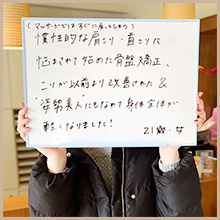 (マッサージなどはすぐに戻ってしまうので)
慣性的な肩こり・首こりに
悩まされて始めた骨盤矯正、
こりが以前より改善された &
"姿勢美人"にもなれて身体全体が
軽くなりました!
21歳・女